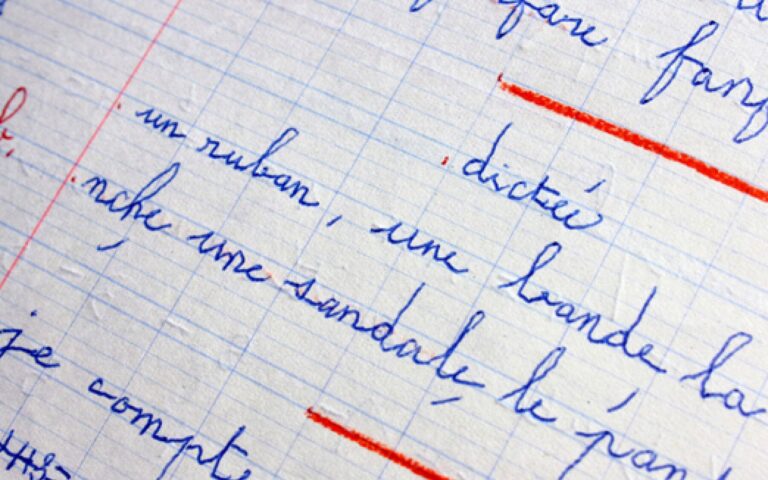 fanfare fanf
dictée
un ruban, une bande la
nche une sandale, le pan
je compte